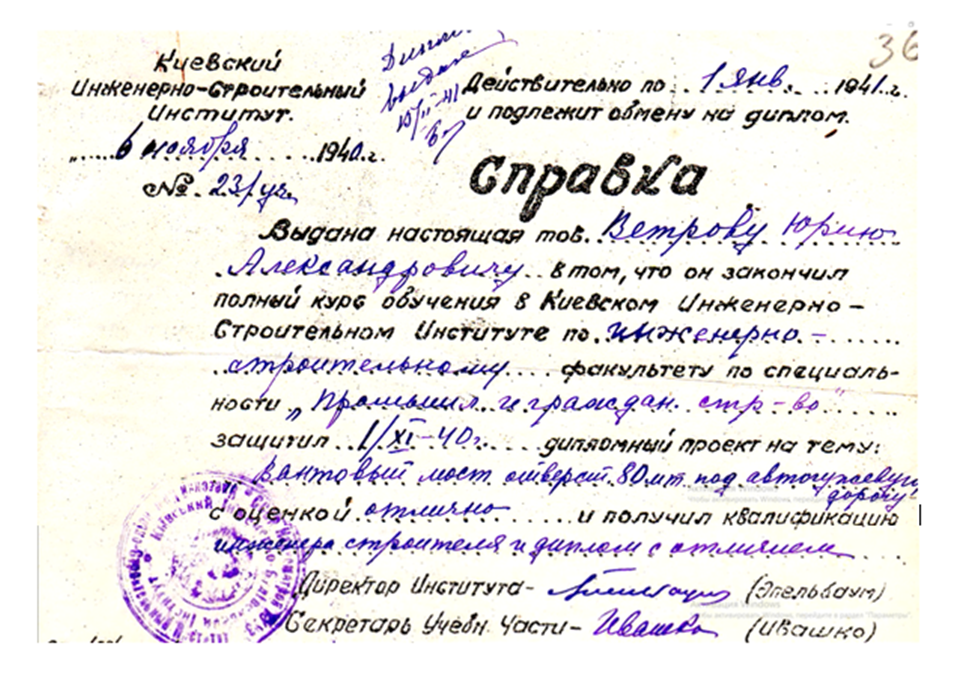 36
Киевский
Инженерно-Строительный
Институт.
6 ноября 1940.г.
№. 23/уч.
Диплом
выдан
10/II-41
Действительно по 1 янв. 1941.г.
и подлежит обмену на диплом.
Справка
Выдана настоящая тов. Ветрову Юрию
Александровичу в том, что он закончил
полный курс обучения в Киевском Инженерно-
Строительном Институте по инженерно-
строительному факультету по специаль-
ности „Промышл. и граждан. стр-во"
защитил 1/XI-40г. дипломный проект на тему:
Вантовый мост отверст. 80 мт. под автогужевую
дорогу"
с оценкой отлично и получил квалификацию
инженера строителя и диплом с отличием
Директор Института- (Эгельбаум)
Секретарь Учебн. Части- Ивашко (Ивашко)